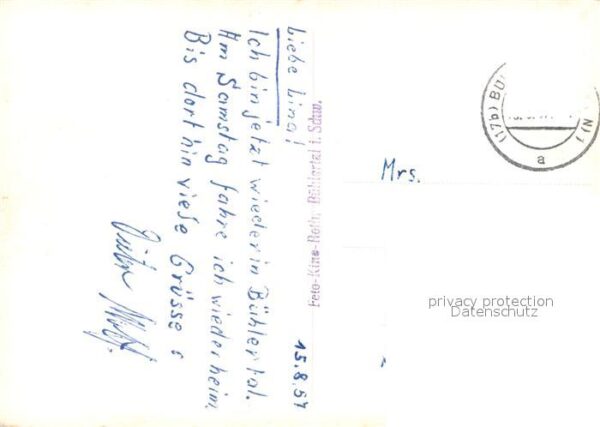 15.8.54
Liebe Lina!
Ich bin jetzt wieder in Bühlertal.
Am Samstag fahre ich wieder heim.
Bis dorthin viele Grüsse
Foto-Kino-Roth, Bühlertal i. Schw.
(17b) BÜ
a
Mrs.
privacy protection
Datenschutz